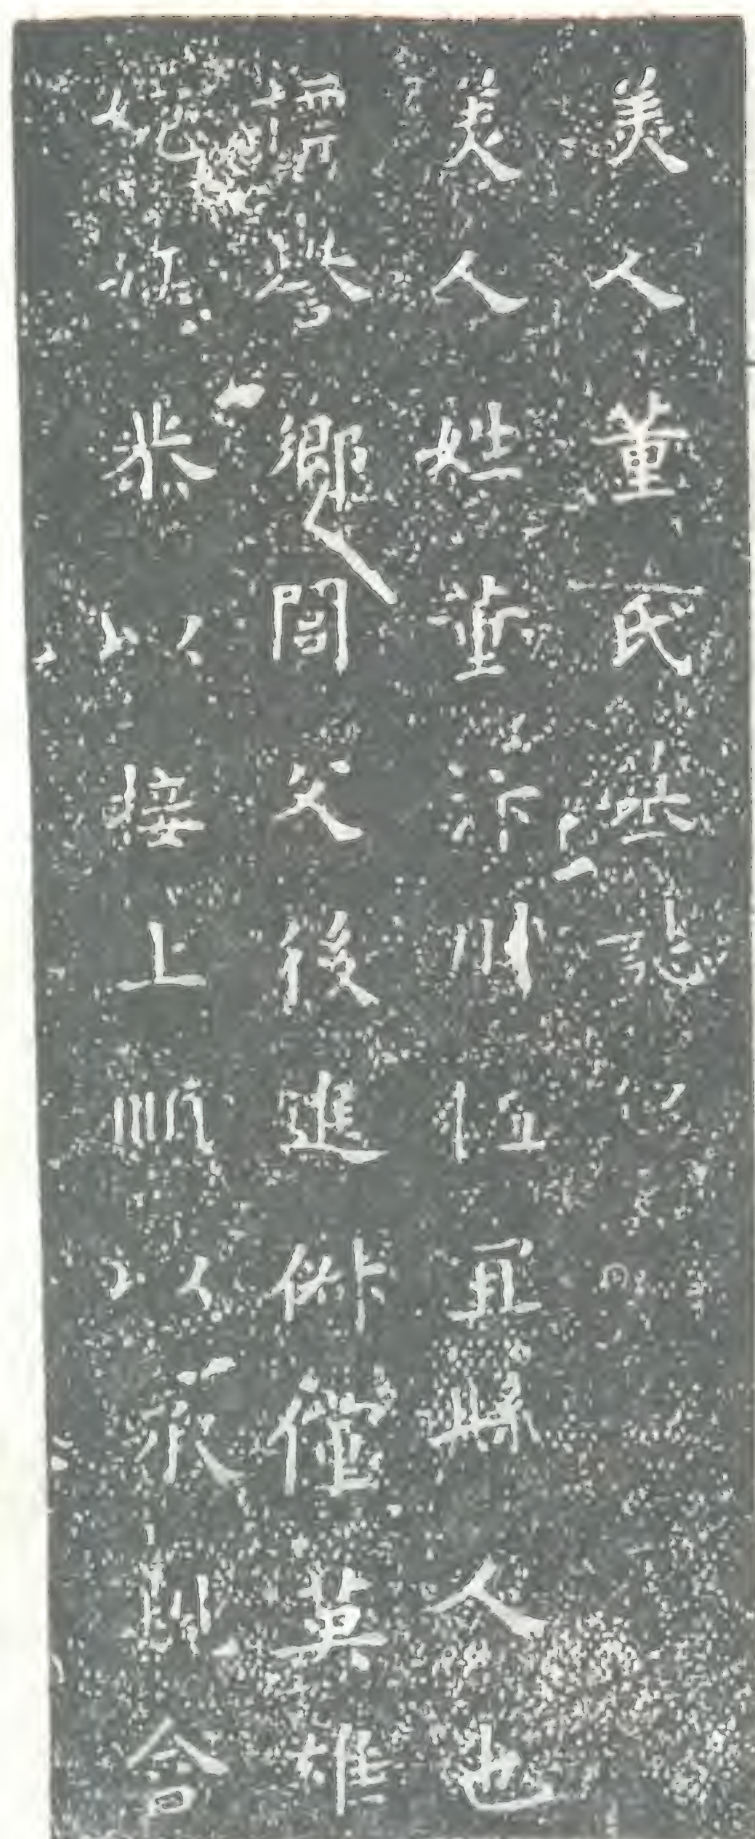 美人董氏墓誌
美人姓董汴州恤宜縣人也
標譽鄉閭父後進俳儃英雄
婉嫕恭以接上順以承親含